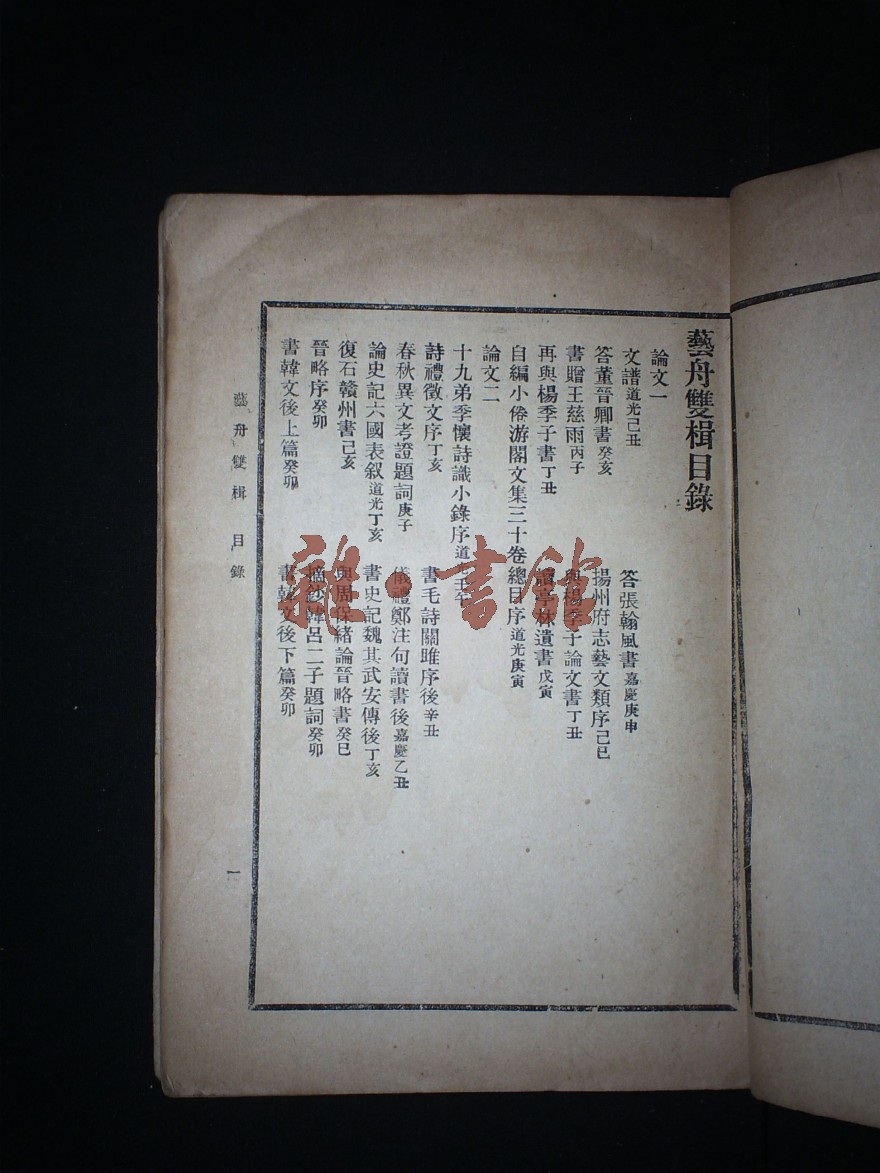 藝舟雙楫目錄
論文一
文譜道光己丑
答張翰風書嘉慶庚申
答董晉卿書癸亥
揚州府志藝文類序己巳
書贈王慈雨丙子
與楊季子論文書丁丑
再與楊季子書丁丑
讀亭林遺書戊寅
自編小倦游閣文集三十卷總目序道光庚寅
論文二
十九弟季懷詩識小錄序道光壬午
詩禮徵文序丁亥
書毛詩關雎序後辛丑
春秋異文考證題詞庚子
儀禮鄭注句讀書後嘉慶乙丑
論史記六國表叙道光丁亥
書史記魏其武安傳後丁亥
復石贛州書己亥
與周保緒論晉略書癸巳
晉略序癸卯
摘鈔韓呂二子題詞癸卯
書韓文後上篇癸卯
書韓文後下篇癸卯
藝舟雙楫 目錄
一
雜·書館